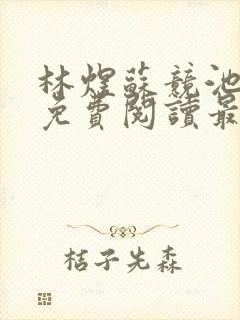 林煜蘇競池
免費閱讀最
桔子先森